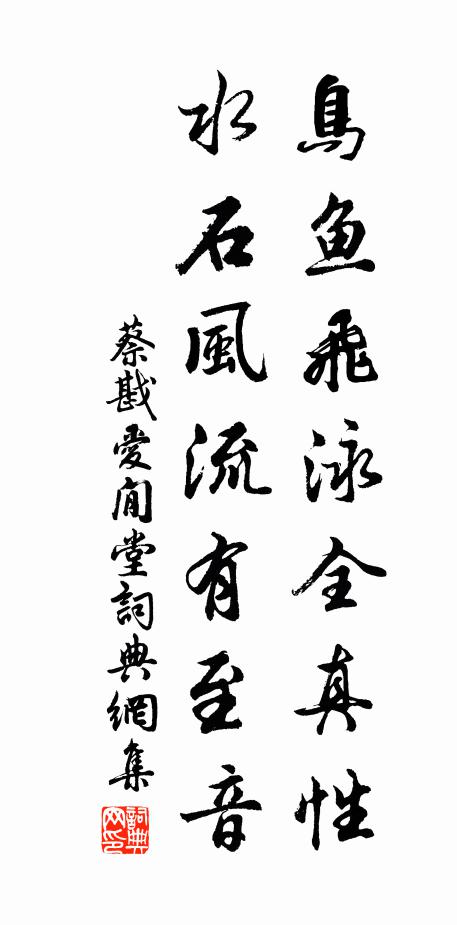 鳥魚飛泳全真性
水石風流有至音
蔡戡愛閒堂詞典網集
詞典網印